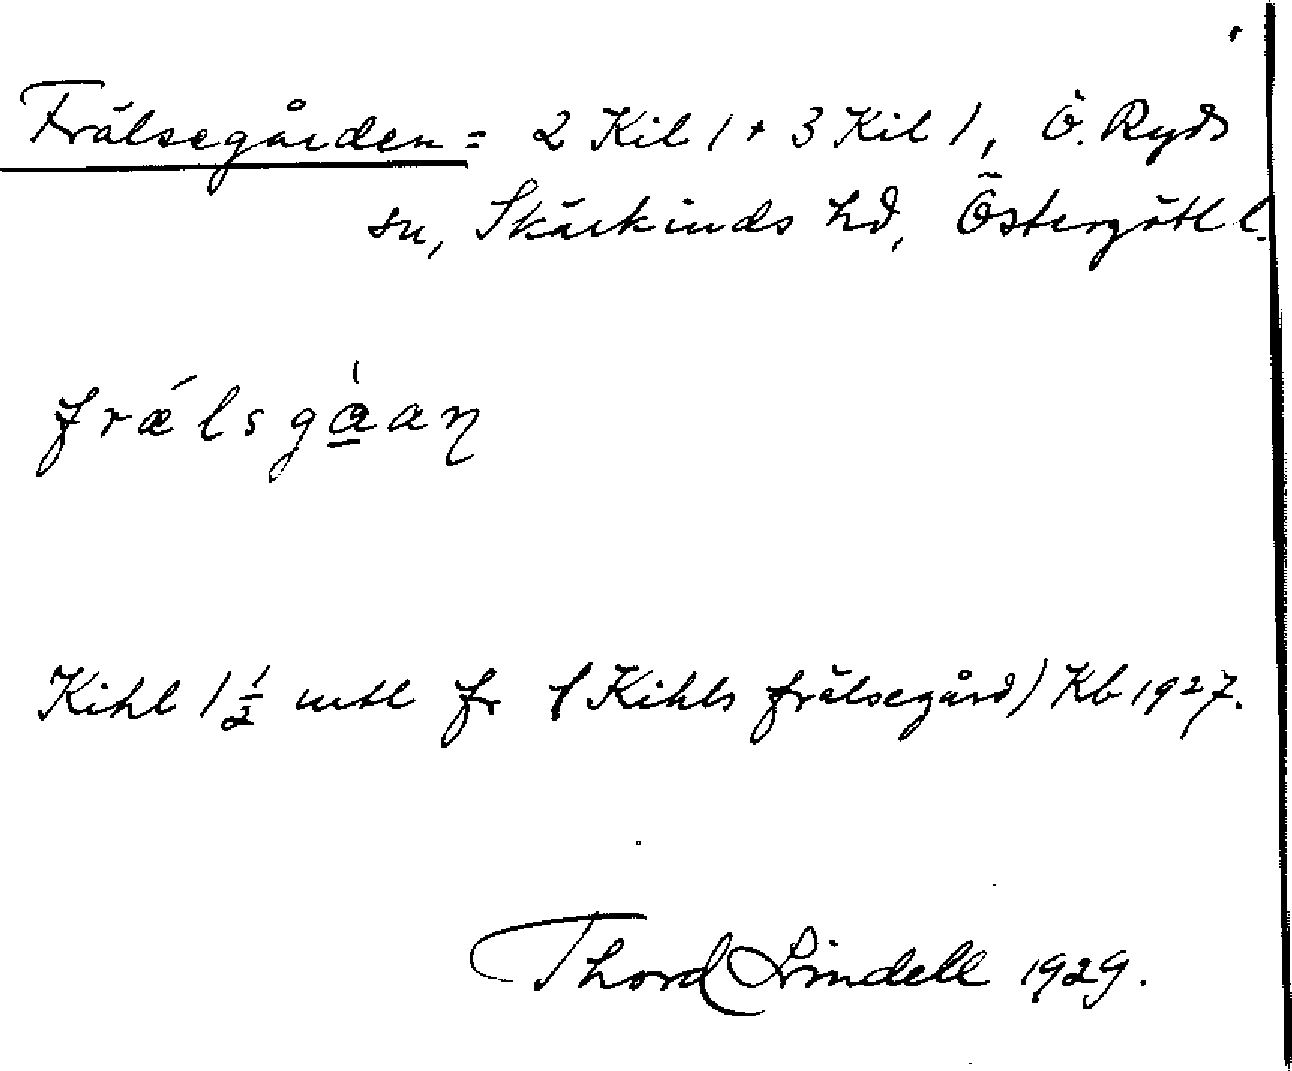 Frälsegården = 2 Kil 1 + 3 Kil 1, Ö. Ryds
sn, Skärkinds hd, Östergötl l.
frǽlsgàaŋ
Kihl 1 ½ mtl fr (Kihls frälsegård) Kb 1927.
Thord Lindell 1929.